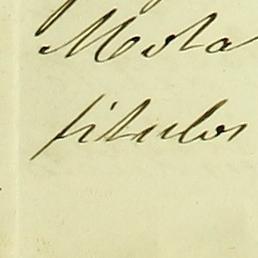 Mota
titulos